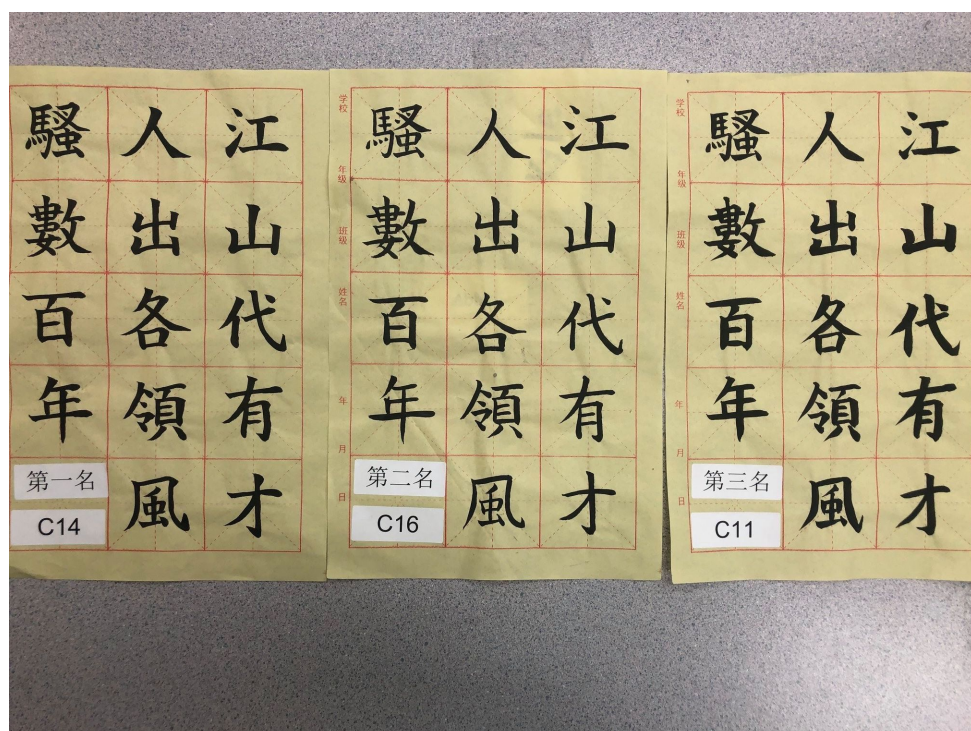 江山代有才
人出各領風
騷數百年
第一名
C14
学校
年级
班级
姓名
年
月
日
江山代有才
人出各領風
騷數百年
第二名
C16
学校
年级
班级
姓名
年
月
日
江山代有才
人出各領風
騷數百年
第三名
C11